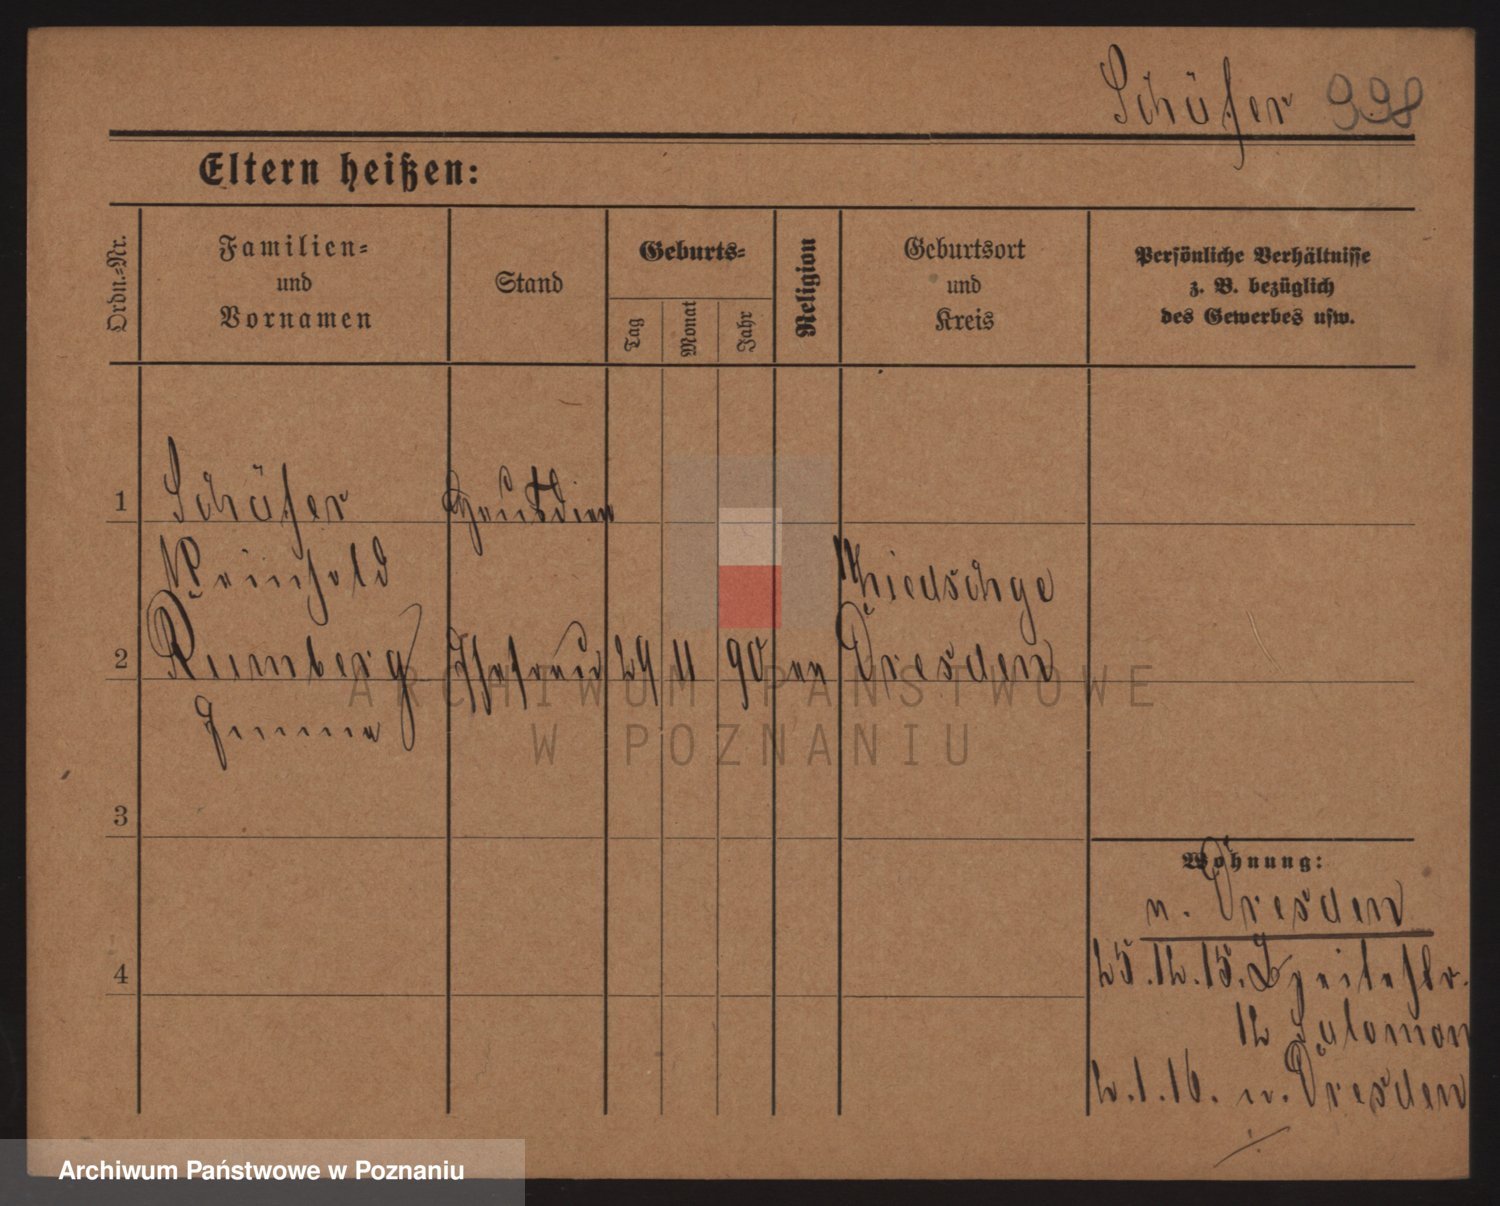 Schäfer 998
Eltern heißen:
Ordn.-Nr.
Familien-
und
Vornamen
Stand
Geburts-
Tag
Monat
Jahr
Religion
Geburtsort
und
Kreis
Persönliche Verhältnisse
z. B. bezüglich
des Gewerbes usw.
1 Schäfer
Reinhold
2 Rumberg Ehefrau 29 11 90 ev Dresden
3
4
Wohnung:
n. Dresden
25.12.15. Breitestr.
12 Salomon
2.1.16. n. Dresden
ARCHIWUM PAŃSTWOWE
W POZNANIU
Archiwum Państwowe w Poznaniu